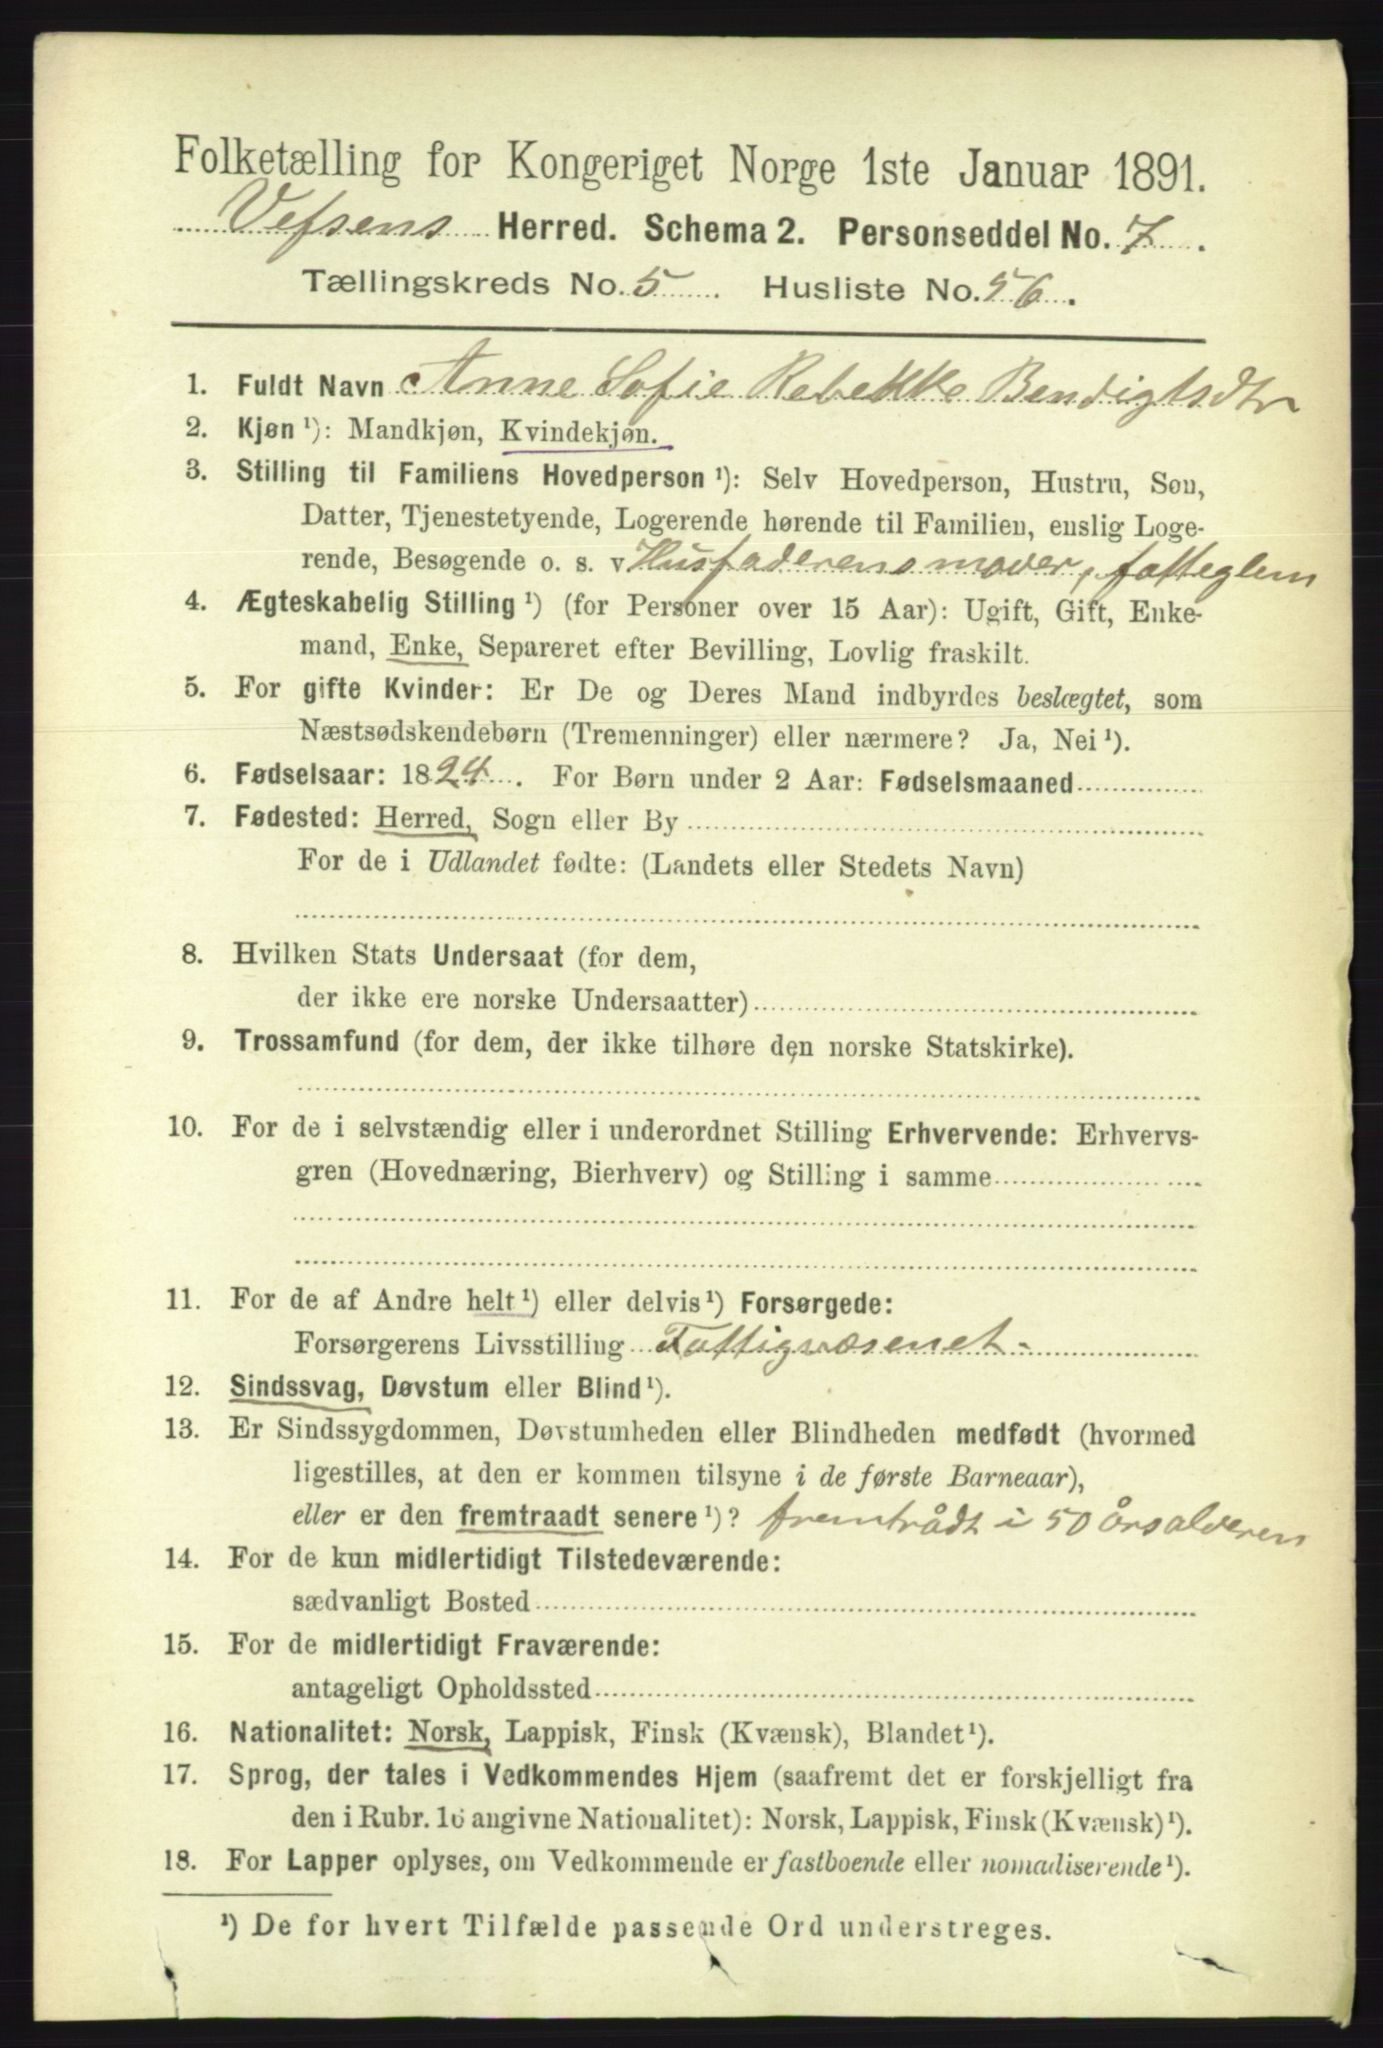 Folketælling for Kongeriget Norge 1ste Januar 1891.
Vefsens Herred. Schema 2. Personseddel No. 7.
Tællingskreds No. 5. Husliste No. 56.
1. Fuldt Navn Anne Sofie Rebekke Bendigtsdtr
2. Kjøn ¹): Mandkjøn, Kvindekjøn.
3. Stilling til Familiens Hovedperson ¹): Selv Hovedperson, Hustru, Søn,
Datter, Tjenestetyende, Logerende hørende til Familien, enslig Loge-
rende, Besøgende o. s. v Husfaderens moder, fatteglem
4. Ægteskabelig Stilling ¹) (for Personer over 15 Aar): Ugift, Gift, Enke-
mand, Enke, Separeret efter Bevilling, Lovlig fraskilt.
5. For gifte Kvinder: Er De og Deres Mand indbyrdes beslægtet, som
Næstsødskendebørn (Tremenninger) eller nærmere? Ja, Nei ¹).
6. Fødselsaar: 1824. For Børn under 2 Aar: Fødselsmaaned
7. Fødested: Herred, Sogn eller By
For de i Udlandet fødte: (Landets eller Stedets Navn)
8. Hvilken Stats Undersaat (for dem,
der ikke ere norske Undersaatter)
9. Trossamfund (for dem, der ikke tilhøre den norske Statskirke).
10. For de i selvstændig eller i underordnet Stilling Erhvervende: Erhvervs-
gren (Hovednæring, Bierhverv) og Stilling i samme
11. For de af Andre helt ¹) eller delvis ¹) Forsørgede:
Forsørgerens Livsstilling Fattigvæsenet
12. Sindssvag, Døvstum eller Blind ¹).
13. Er Sindssygdommen, Døvstumheden eller Blindheden medfødt (hvormed
ligestilles, at den er kommen tilsyne i de første Barneaar),
eller er den fremtraadt senere ¹)? fremtrådt i 50 årsalderen
14. For de kun midlertidigt Tilstedeværende:
sædvanligt Bosted
15. For de midlertidigt Fraværende:
antageligt Opholdssted
16. Nationalitet: Norsk, Lappisk, Finsk (Kvænsk), Blandet ¹).
17. Sprog, der tales i Vedkommendes Hjem (saafremt det er forskjelligt fra
den i Rubr. 16 angivne Nationalitet): Norsk, Lappisk, Finsk (Kvænsk) ¹).
18. For Lapper oplyses, om Vedkommende er fastboende eller nomadiserende ¹).
¹) De for hvert Tilfælde passende Ord understreges.